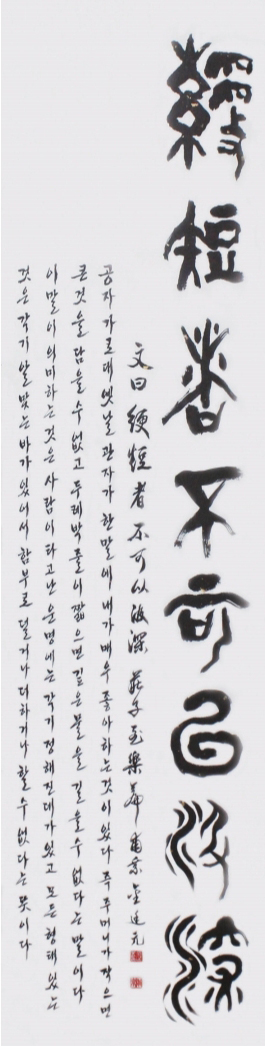 綆短者不可以汲深
文曰 綆短者不可以汲深 莊子至樂篇
공자가로데 옛날 관자가 한 말에 내가 매우 좋아하는 것이 있다 즉 주머니가 작으면
큰 것을 담을 수 없고 두레박 줄이 짧으면 깊은 물을 길을 수 없다는 말이다
이 말이 의미하는 것은 사람이 타고난 운명에는 각기 정해진 데가 있고 모든 형태 있는
것은 각기 알맞는 바가 있어서 함부로 덜거나 더하거나 할 수 없다는 뜻이다